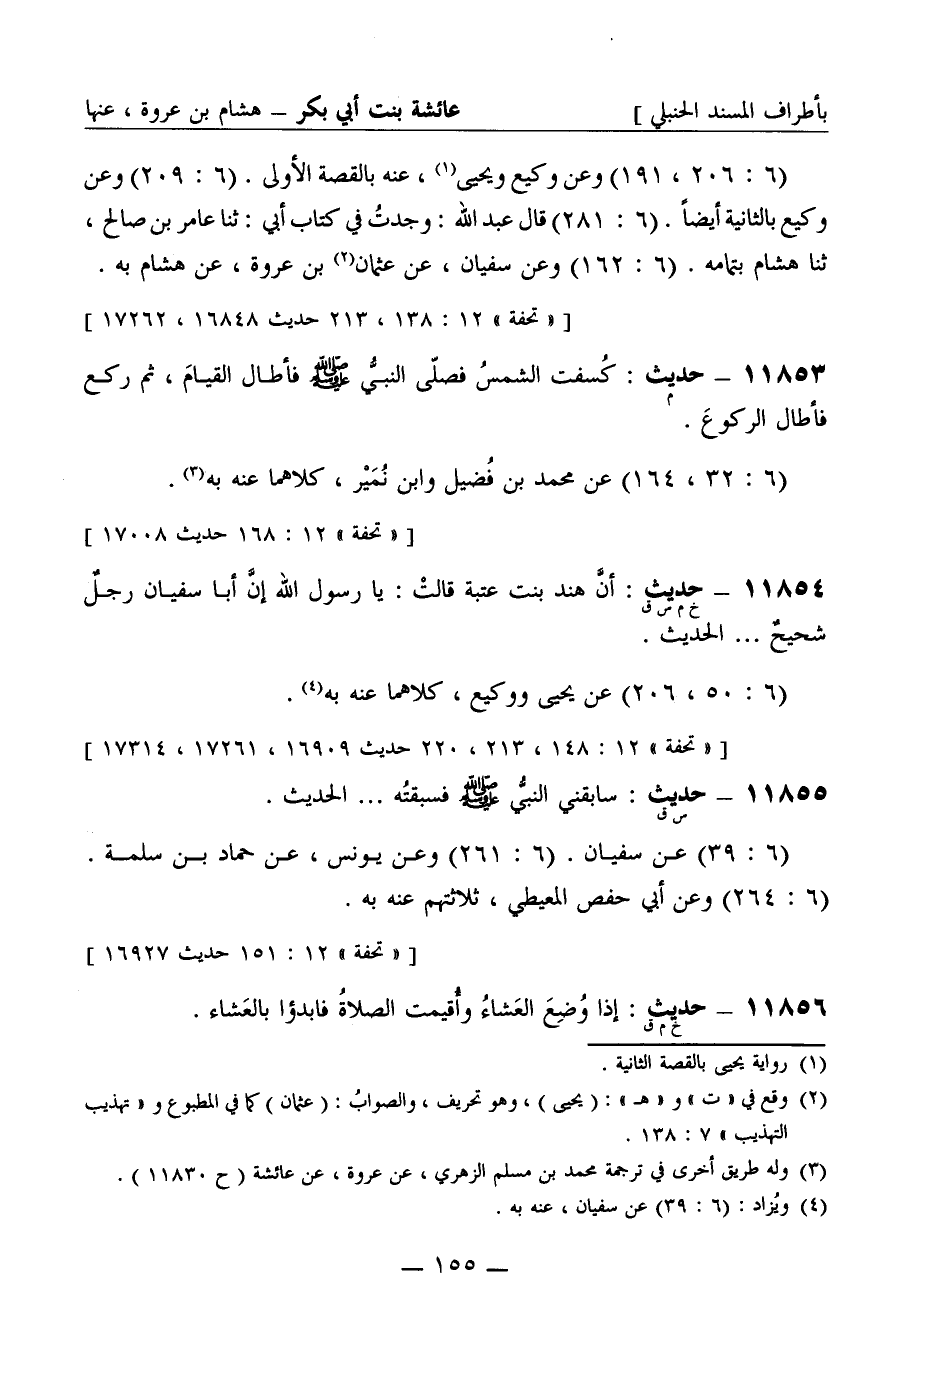 بأطراف المسند الحنبلي ] عائشة بنت أبي بكر ــ هشام بن عروة ، عنها
(٦ : ٢٠٦ ، ١٩١) وعن وكيع ويحيى(١) ، عنه بالقصة الأولى . (٦ : ٢٠٩) وعن
وكيع بالثانية أيضاً . (٦ : ٢٨١) قال عبد الله : وجدتُ في كتاب أبي : ثنا عامر بن صالح ،
ثنا هشام بتمامه . (٦ : ١٦٢) وعن سفيان ، عن عثمان(٢) بن عروة ، عن هشام به .
[ « تحفة » ١٢ : ١٣٨ ، ٢١٣ حديث ١٦٨٤٨ ، ١٧٢٦٢ ]
١١٨٥٣ ــ حديث : كُسفت الشمسُ فصلّى النبيُّ ﷺ فأطال القيامَ ، ثم ركع
م
فأطال الركوعَ .
(٦ : ٣٢ ، ١٦٤) عن محمد بن فُضيل وابن نُمَيْر ، كلاهما عنه به(٣) .
[ « تحفة » ١٢ : ١٦٨ حديث ١٧٠٠٨ ]
١١٨٥٤ ــ حديث : أنَّ هند بنت عتبة قالتْ : يا رسول الله إنَّ أبا سفيان رجلٌ
خ م س ق
شحيحٌ ... الحديث .
(٦ : ٥٠ ، ٢٠٦) عن يحيى ووكيع ، كلاهما عنه به(٤) .
[ « تحفة » ١٢ : ١٤٨ ، ٢١٣ ، ٢٢٠ حديث ١٦٩٠٩ ، ١٧٢٦١ ، ١٧٣١٤ ]
١١٨٥٥ ــ حديث : سابقني النبيُّ ﷺ فسبقتُه ... الحديث .
س ق
(٦ : ٣٩) عن سفيان . (٦ : ٢٦١) وعن يونس ، عن حماد بن سلمة .
(٦ : ٢٦٤) وعن أبي حفص المعيطي ، ثلاثتهم عنه به .
[ « تحفة » ١٢ : ١٥١ حديث ١٦٩٢٧ ]
١١٨٥٦ ــ حديث : إذا وُضِعَ العَشاءُ وأُقيمت الصلاةُ فابدؤا بالعَشاء .
خ م ق
(١) رواية يحيى بالقصة الثانية .
(٢) وقع في « ت » و « هـ » : ( يحيى ) ، وهو تحريف ، والصوابُ : ( عثمان ) كما في المطبوع و « تهذيب
التهذيب » ٧ : ١٣٨ .
(٣) وله طريق أخرى في ترجمة محمد بن مسلم الزهري ، عن عروة ، عن عائشة ( ح ١١٨٣٠ ) .
(٤) ويُزاد : (٦ : ٣٩) عن سفيان ، عنه به .
ــ ١٥٥ ــ